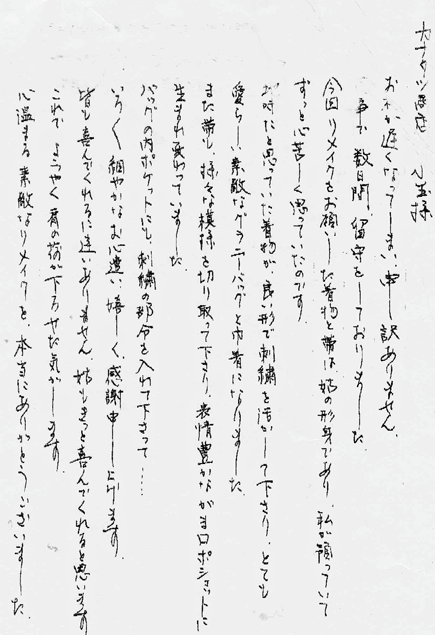 カナタツ商店 小玉様
お礼が遅くなってしまい、申し訳ありません。
事で数日間、留守をしておりました
今回リメイクをお願いした着物と帯は、姑の形身であり、私が預っていて
ずっと心苦しく思っていたのです。
お時だと思っていた着物が、良い形で刺繍を活かして下さり、とても
愛らしい素敵なグラニーバッグと巾着になりました
また帯も、様々な模様を切り取って下さり、表情豊かながま口ポシェットに
生まれ変わっていました。
バッグの内ポケットにも、刺繍の部分を入れて下さって…
いろいろ細やかなお心遣い、嬉しく、感謝申し上げます。
皆も喜んでくれるに違いありません。姑もきっと喜んでくれると思います
これでようやく肩の荷が下ろせた気がします。
心温まる素敵なリメイクを、本当にありがとうございました。